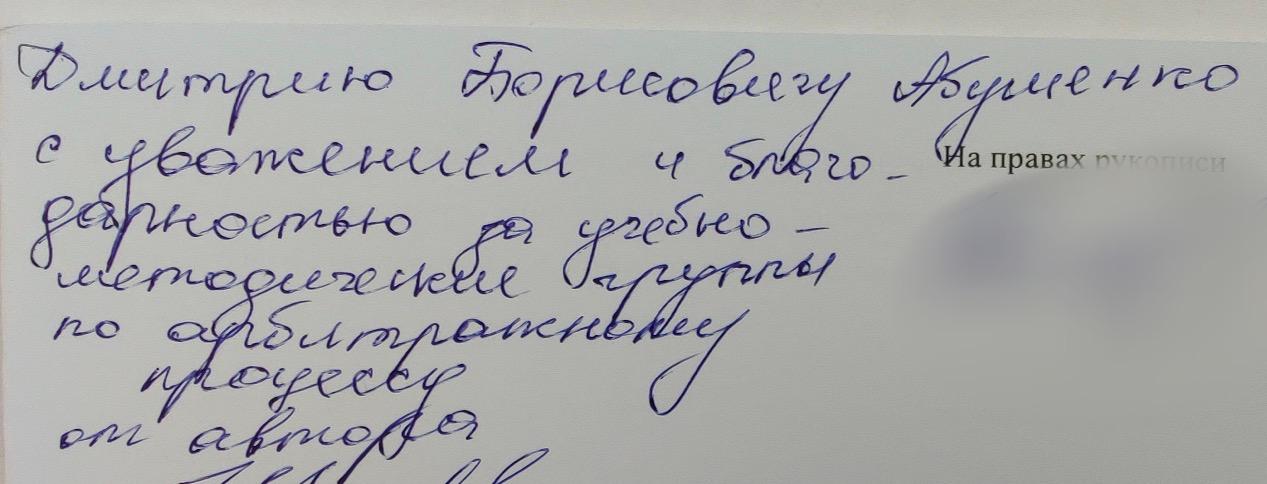 Дмитрию Борисовичу Абушенко
с уважением и благо-
На правах рукописи
дарностью за учебно-
методические группы
по арбитражному
процессу
от автора